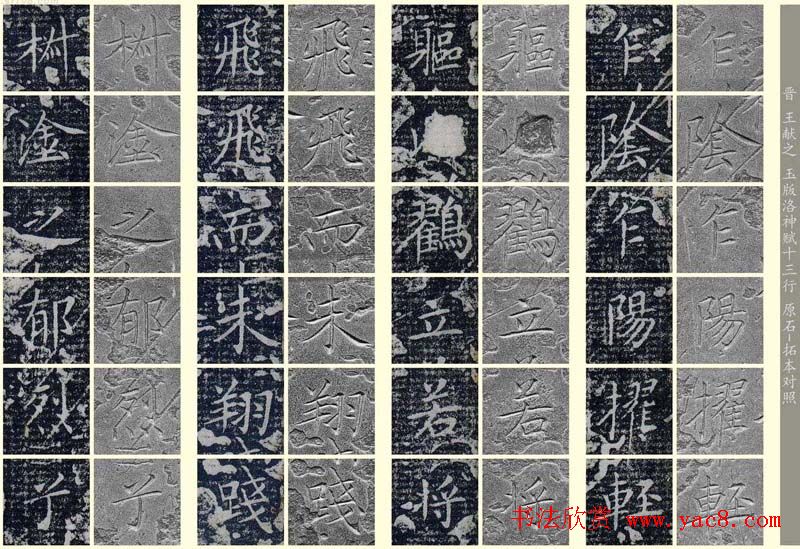 晋 王献之 玉版洛神赋十三行 原石-拓本对照
乍陰乍陽擢輕
乍陰乍陽擢輕
軀鶴立若将
軀鶴立若将
飛飛而未翔踐
飛飛而未翔踐
椒塗之郁烈
椒塗之郁烈
书法欣赏 www.yac8.com